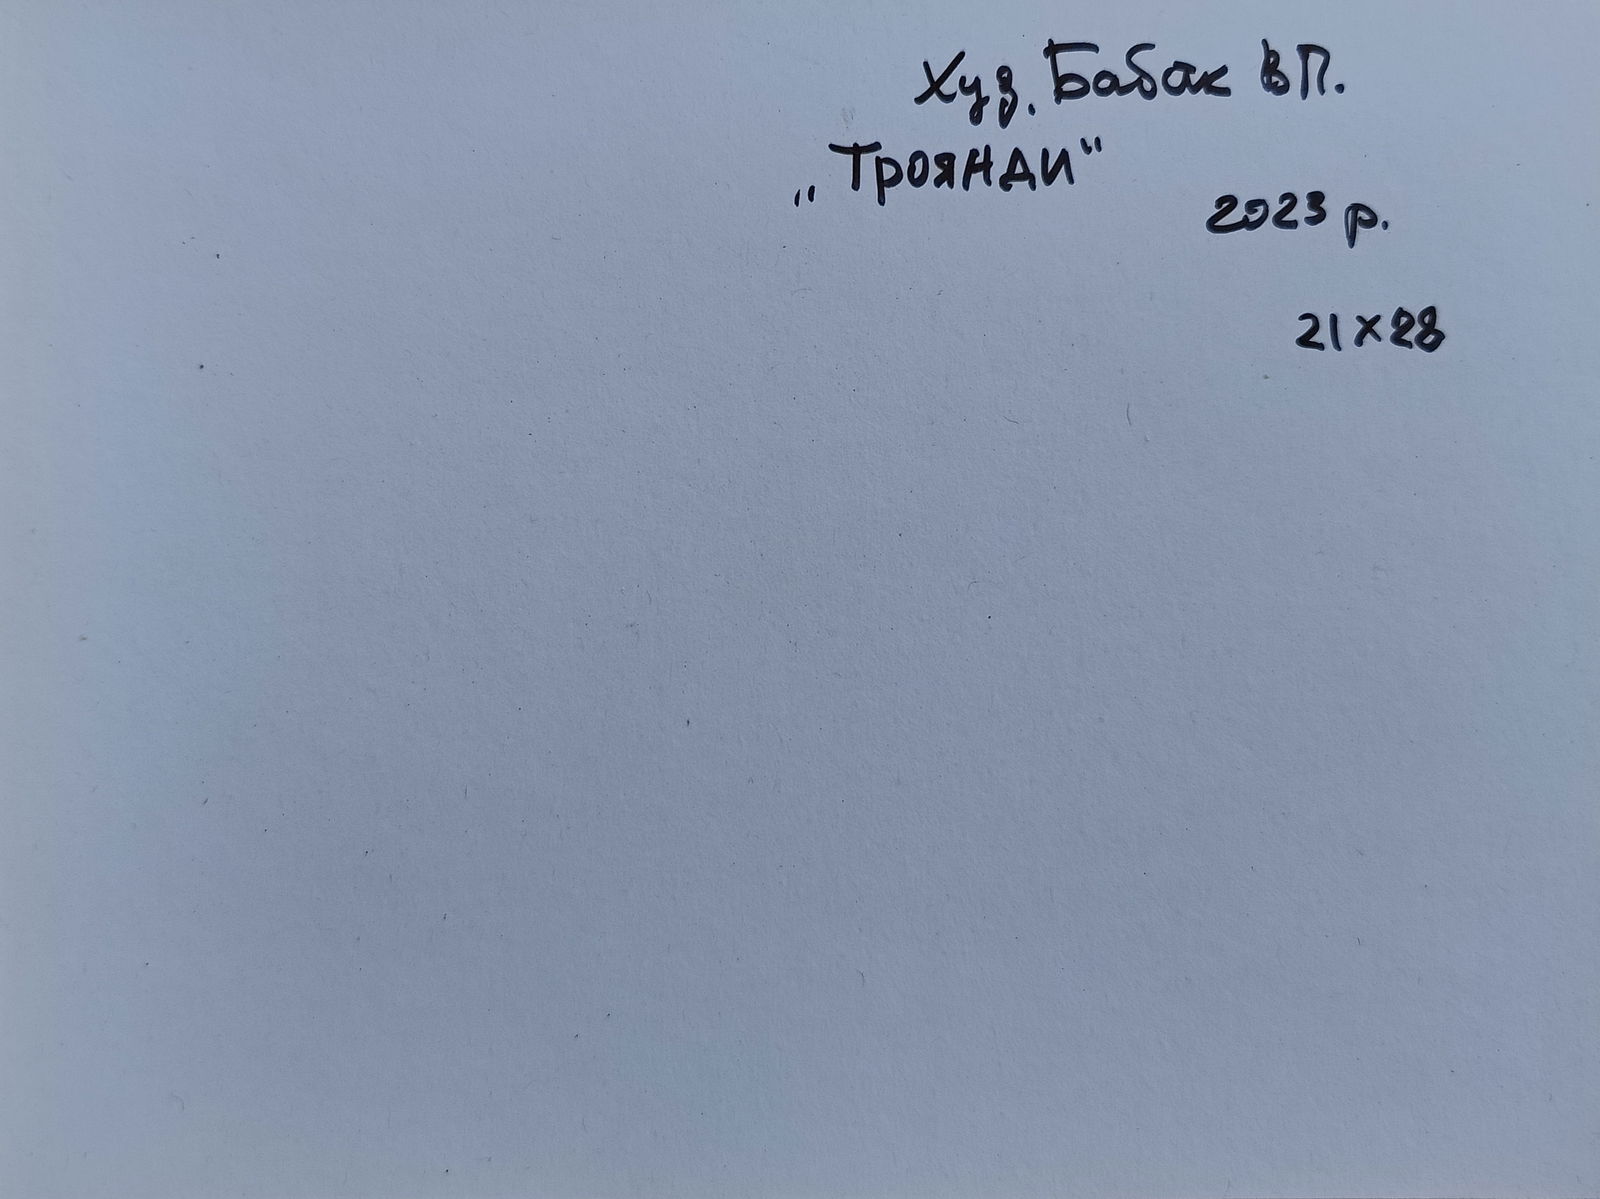 Худ. Бабак В П.
„Троянди“
2023 р.
21 х 28